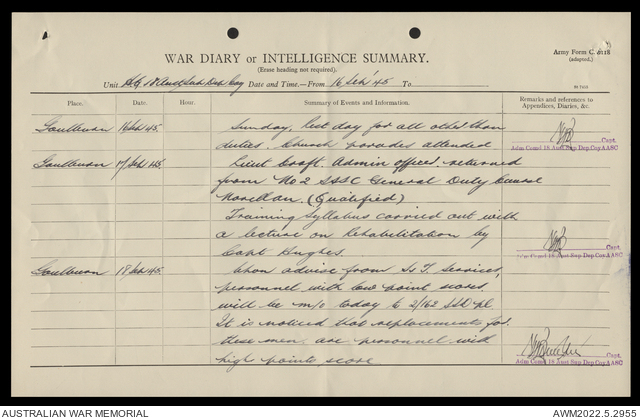 Army Form C. 2118
(adapted.)
WAR DIARY or INTELLIGENCE SUMMARY.
(Erase heading not required).
Unit HQ 18 Aust Sup Dep Coy Date and Time.—From 16 Feb '45 To
Place. Date. Hour. Summary of Events and Information. Remarks and references to Appendices, Diaries, &c.
Goulburn 16 Feb 45. Sunday, rest day for all other than
duties. Church parades attended
Capt.
Adm Comd 18 Aust Sup Dep Coy AASC
Goulburn 17 Feb 45. Lieut Croft. Admin officer. returned
from No 2 General Duty Course
(Qualified)
Training Syllabus carried out with
a lecture on Rehabilitation by
Capt Hughes.
Capt.
Adm Comd 18 Aust Sup Dep Coy AASC
Goulburn 18 Feb 45. Upon advise from S & T Services,
personnel with low point scores
will be m/o today to 2/162 pl
It is noticed that replacements for
these men are personnel with
high points score
Capt.
Adm Comd 18 Aust Sup Dep Coy AASC
AUSTRALIAN WAR MEMORIAL AWM2022.5.2955